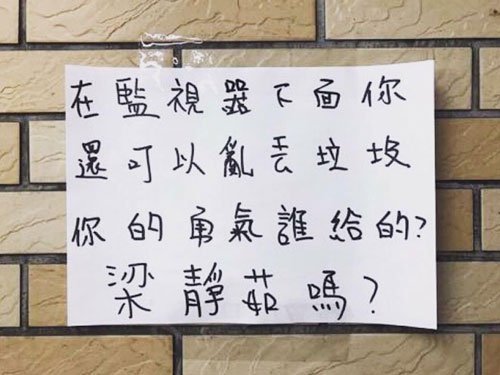 在監視器下面你
還可以亂丟垃圾
你的勇氣誰給的?
梁靜茹嗎?